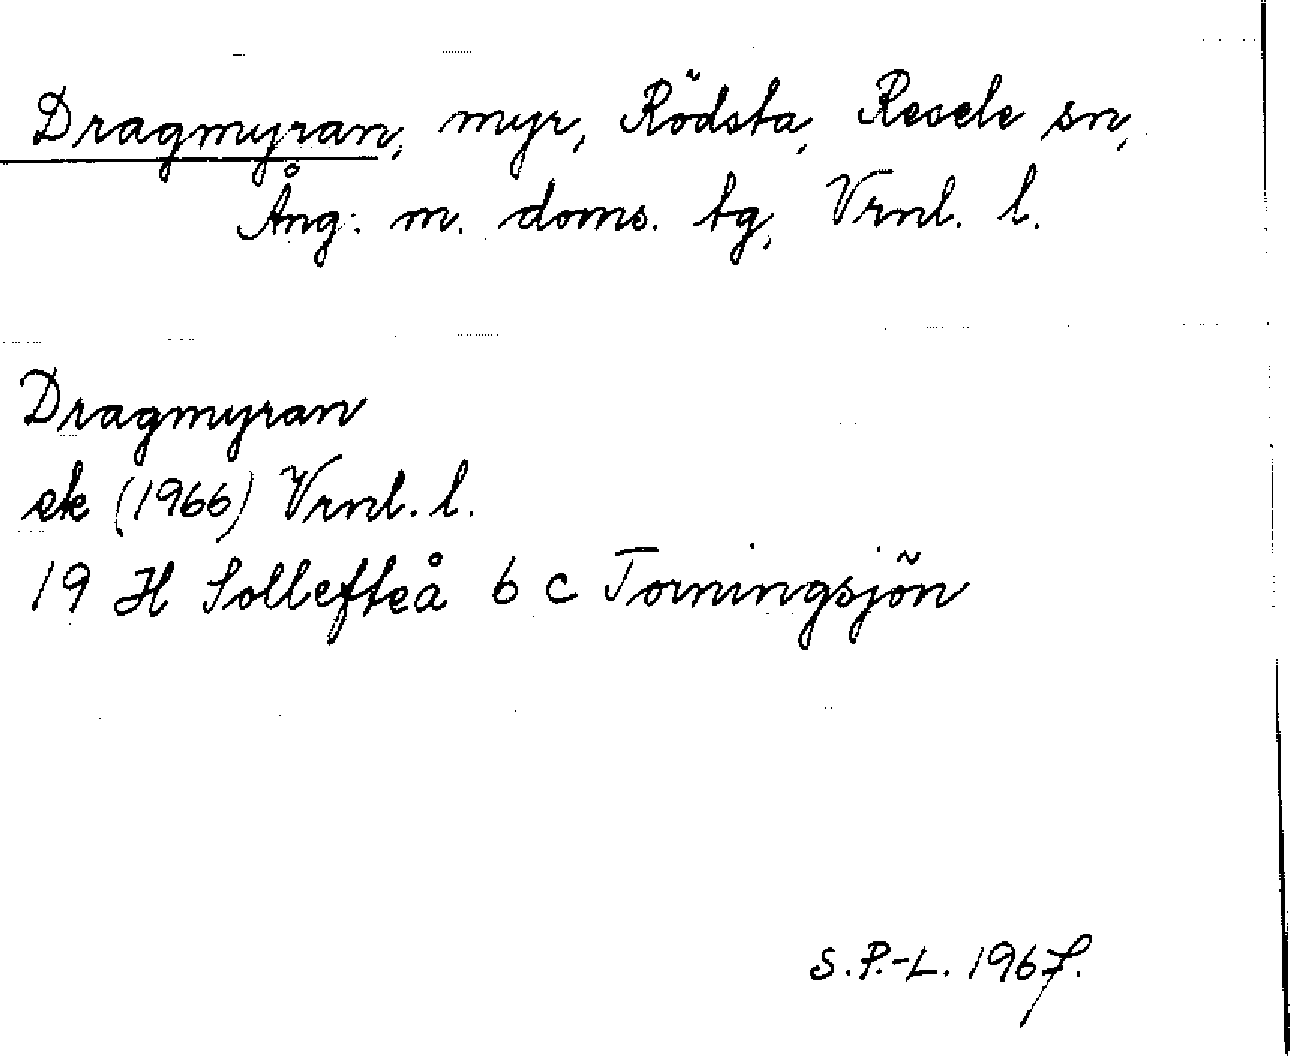 Dragmyran, myr, Rödsta, Resele sn,
Ång. m. doms. tg, Vrnl. l.
Dragmyran
ek (1966) Vrnl. l.
19 H Sollefteå 6 c Torningsjön
S.P.-L. 1967.